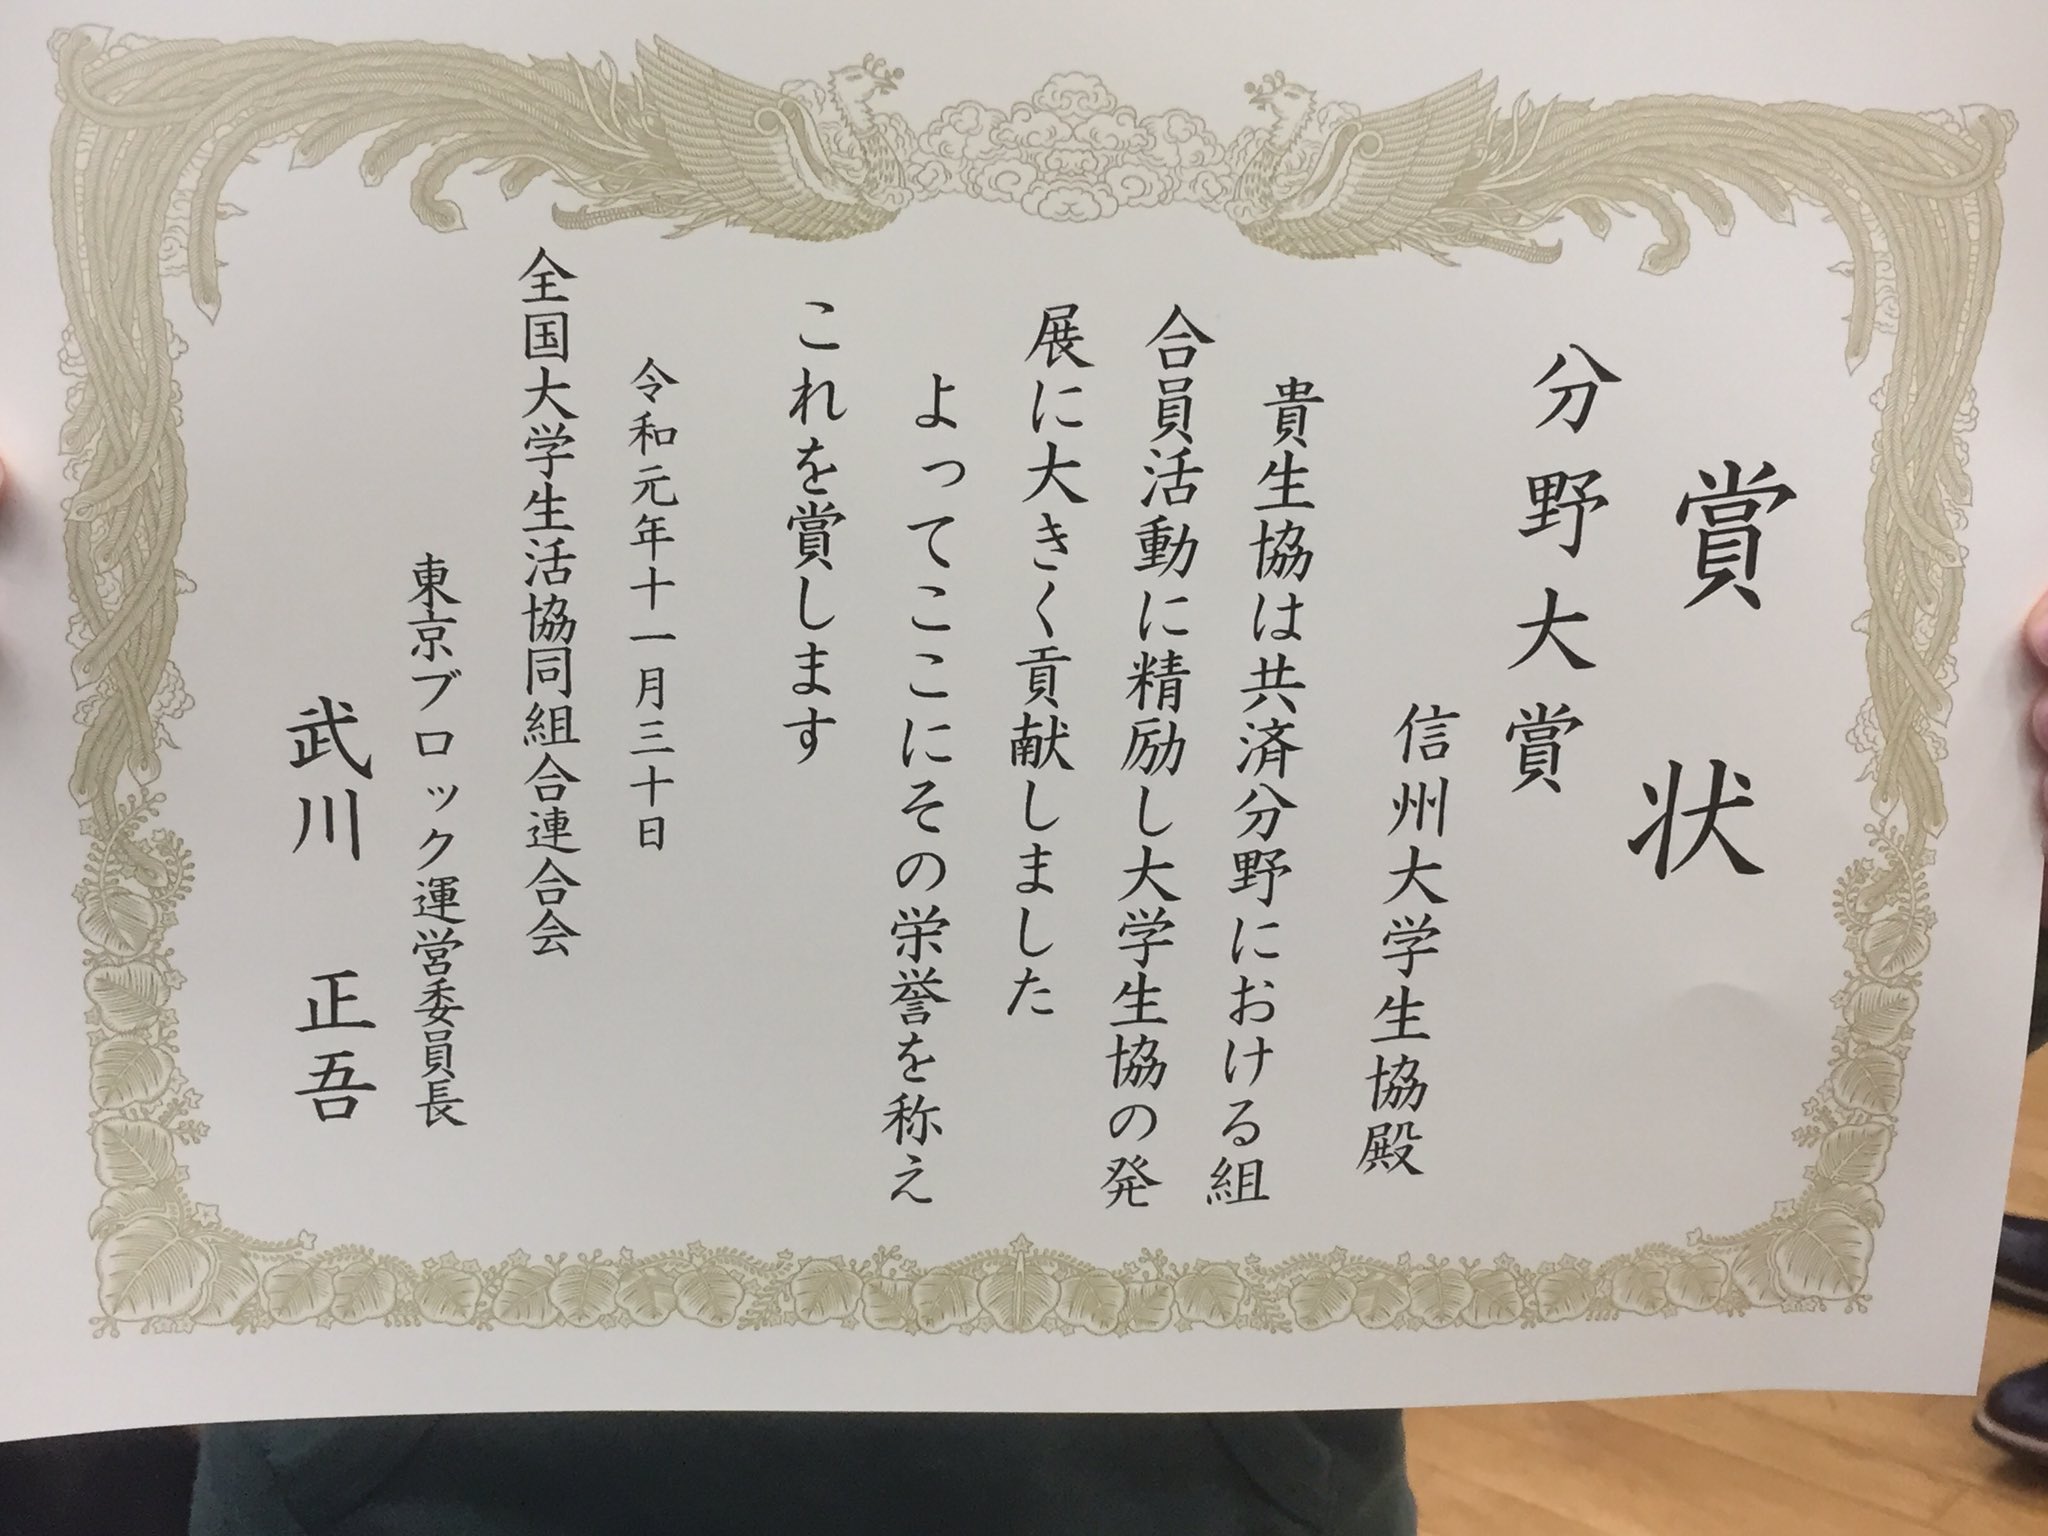 賞状
分野大賞
信州大学生協殿
貴生協は共済分野における組
合員活動に精励し大学生協の発
展に大きく貢献しました
よってここにその栄誉を称え
これを賞します
令和元年十一月三十日
全国大学生活協同組合連合会
東京ブロック運営委員長
武川 正吾